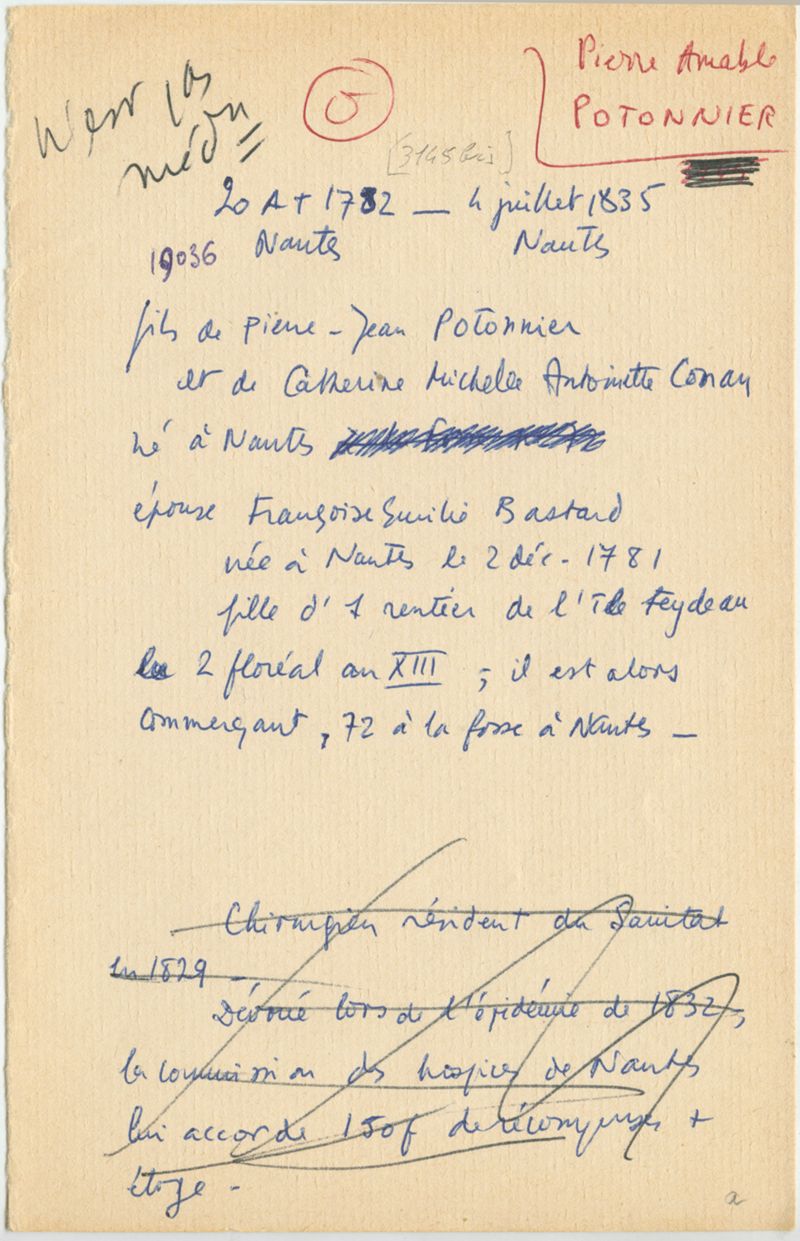 N'est pas
médn
O
Pierre Amable
POTONNIER
[3145 bis]
20 A t 1782 — 4 juillet 1835
19036 Nantes Nantes
fils de Pierre-Jean Potonnier
et de Catherine Michelle Antoinette Conan
né à Nantes
épouse Françoise Emilie Bastard
née à Nantes le 2 déc. 1781
fille d'1 rentier de l'Ile Feydeau
le 2 floréal an XIII ; il est alors
commerçant, 72 à la fosse à Nantes —
Chirurgien résident du Sanitat
en 1829 —
Dévoué lors de l'épidémie de 1832,
la commission des hospices de Nantes
lui accorde 150f de récompenses +
éloge -
a